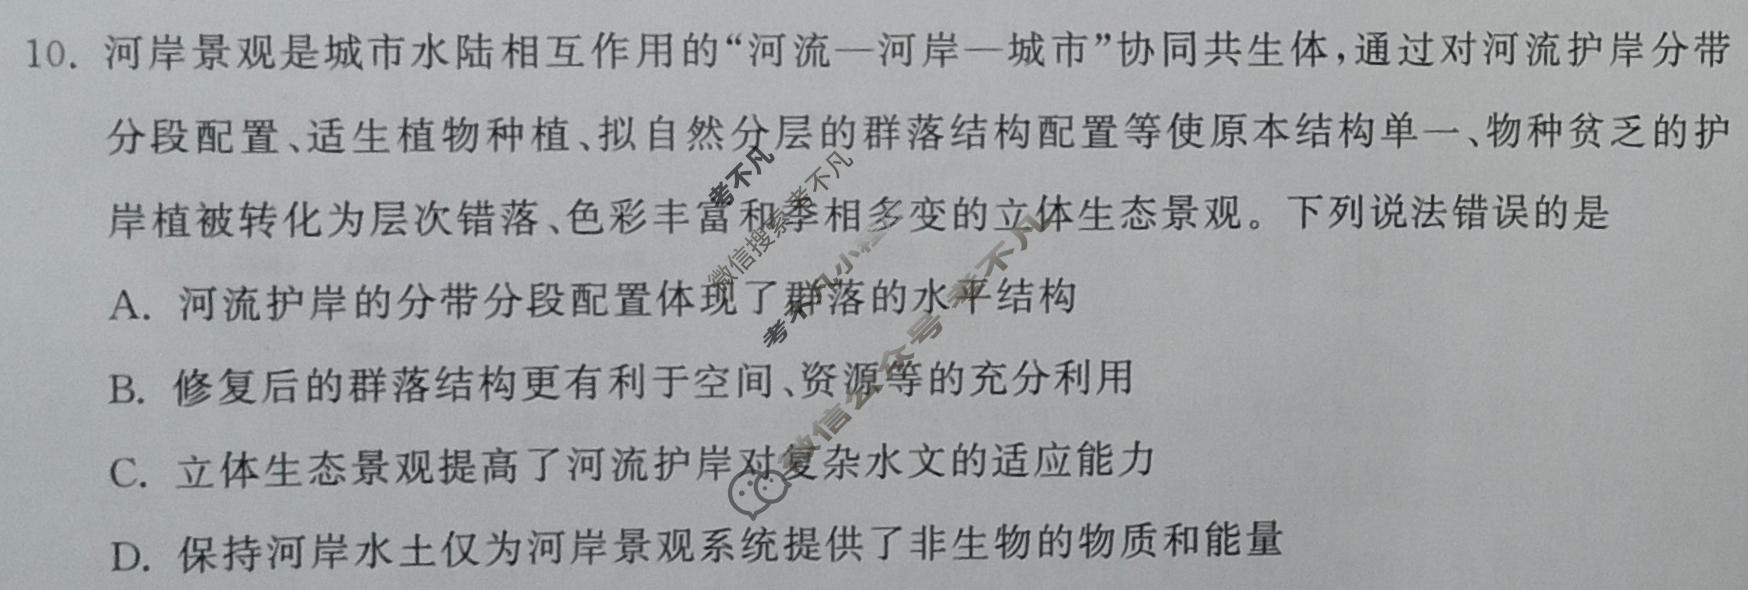 10. 河岸景观是城市水陆相互作用的“河流—河岸—城市”协同共生体,通过对河流护岸分带
分段配置、适生植物种植、拟自然分层的群落结构配置等使原本结构单一、物种贫乏的护
岸植被转化为层次错落、色彩丰富和季相多变的立体生态景观。下列说法错误的是
A. 河流护岸的分带分段配置体现了群落的水平结构
B. 修复后的群落结构更有利于空间、资源等的充分利用
C. 立体生态景观提高了河流护岸对复杂水文的适应能力
D. 保持河岸水土仅为河岸景观系统提供了非生物的物质和能量
考不凡
微信搜索考不凡
考不凡小程序
微信公众号 考不凡